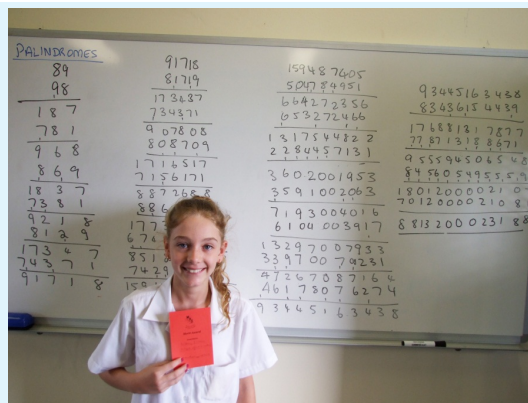 PALINDROMES
89
98
187
781
968
869
1837
7381
9218
8129
17347
74371
91718
91718
81719
173437
734371
907808
808709
1716517
7156171
8872688
159487405
504784951
664272356
653272466
1317544822
2284457131
3602001953
3591002063
7193004016
6104003917
13297007933
33970079231
47267087164
46178076274
93445163438
93445163438
83436154439
176881317877
778713188671
955594506548
845605495559
8813200023188